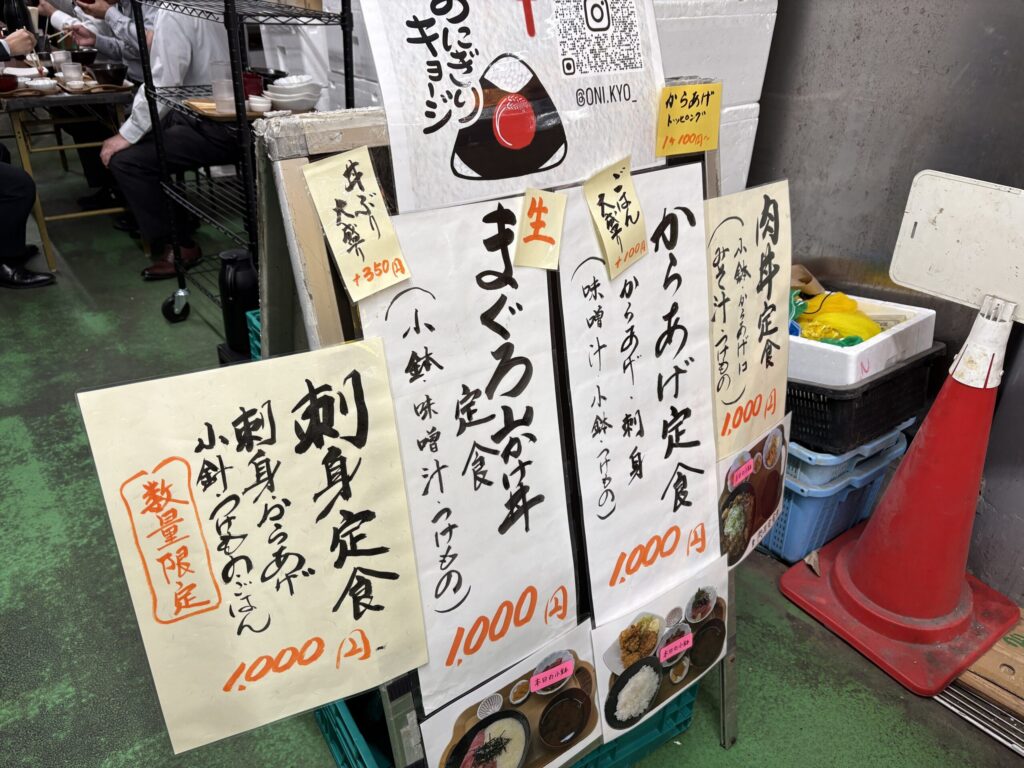 おにぎり
キョージ
@ONI.KYO_
からあげ
トッピング
1ケ100円〜
丼ぶり
大盛り
+350円
生
まぐろ山かけ丼
定食
(小鉢・味噌汁・つけもの)
1,000円
ごはん
大盛り
+100円
からあげ定食
(からあげ・刺身
味噌汁・小鉢・つけもの)
1,000円
肉丼定食
(小鉢・からあげ
みそ汁・つけもの)
1,000円
刺身定食
刺身・からあげ
小針・つけもの・ごはん
数量限定
1,000円
本日の小鉢
本日の小鉢
N